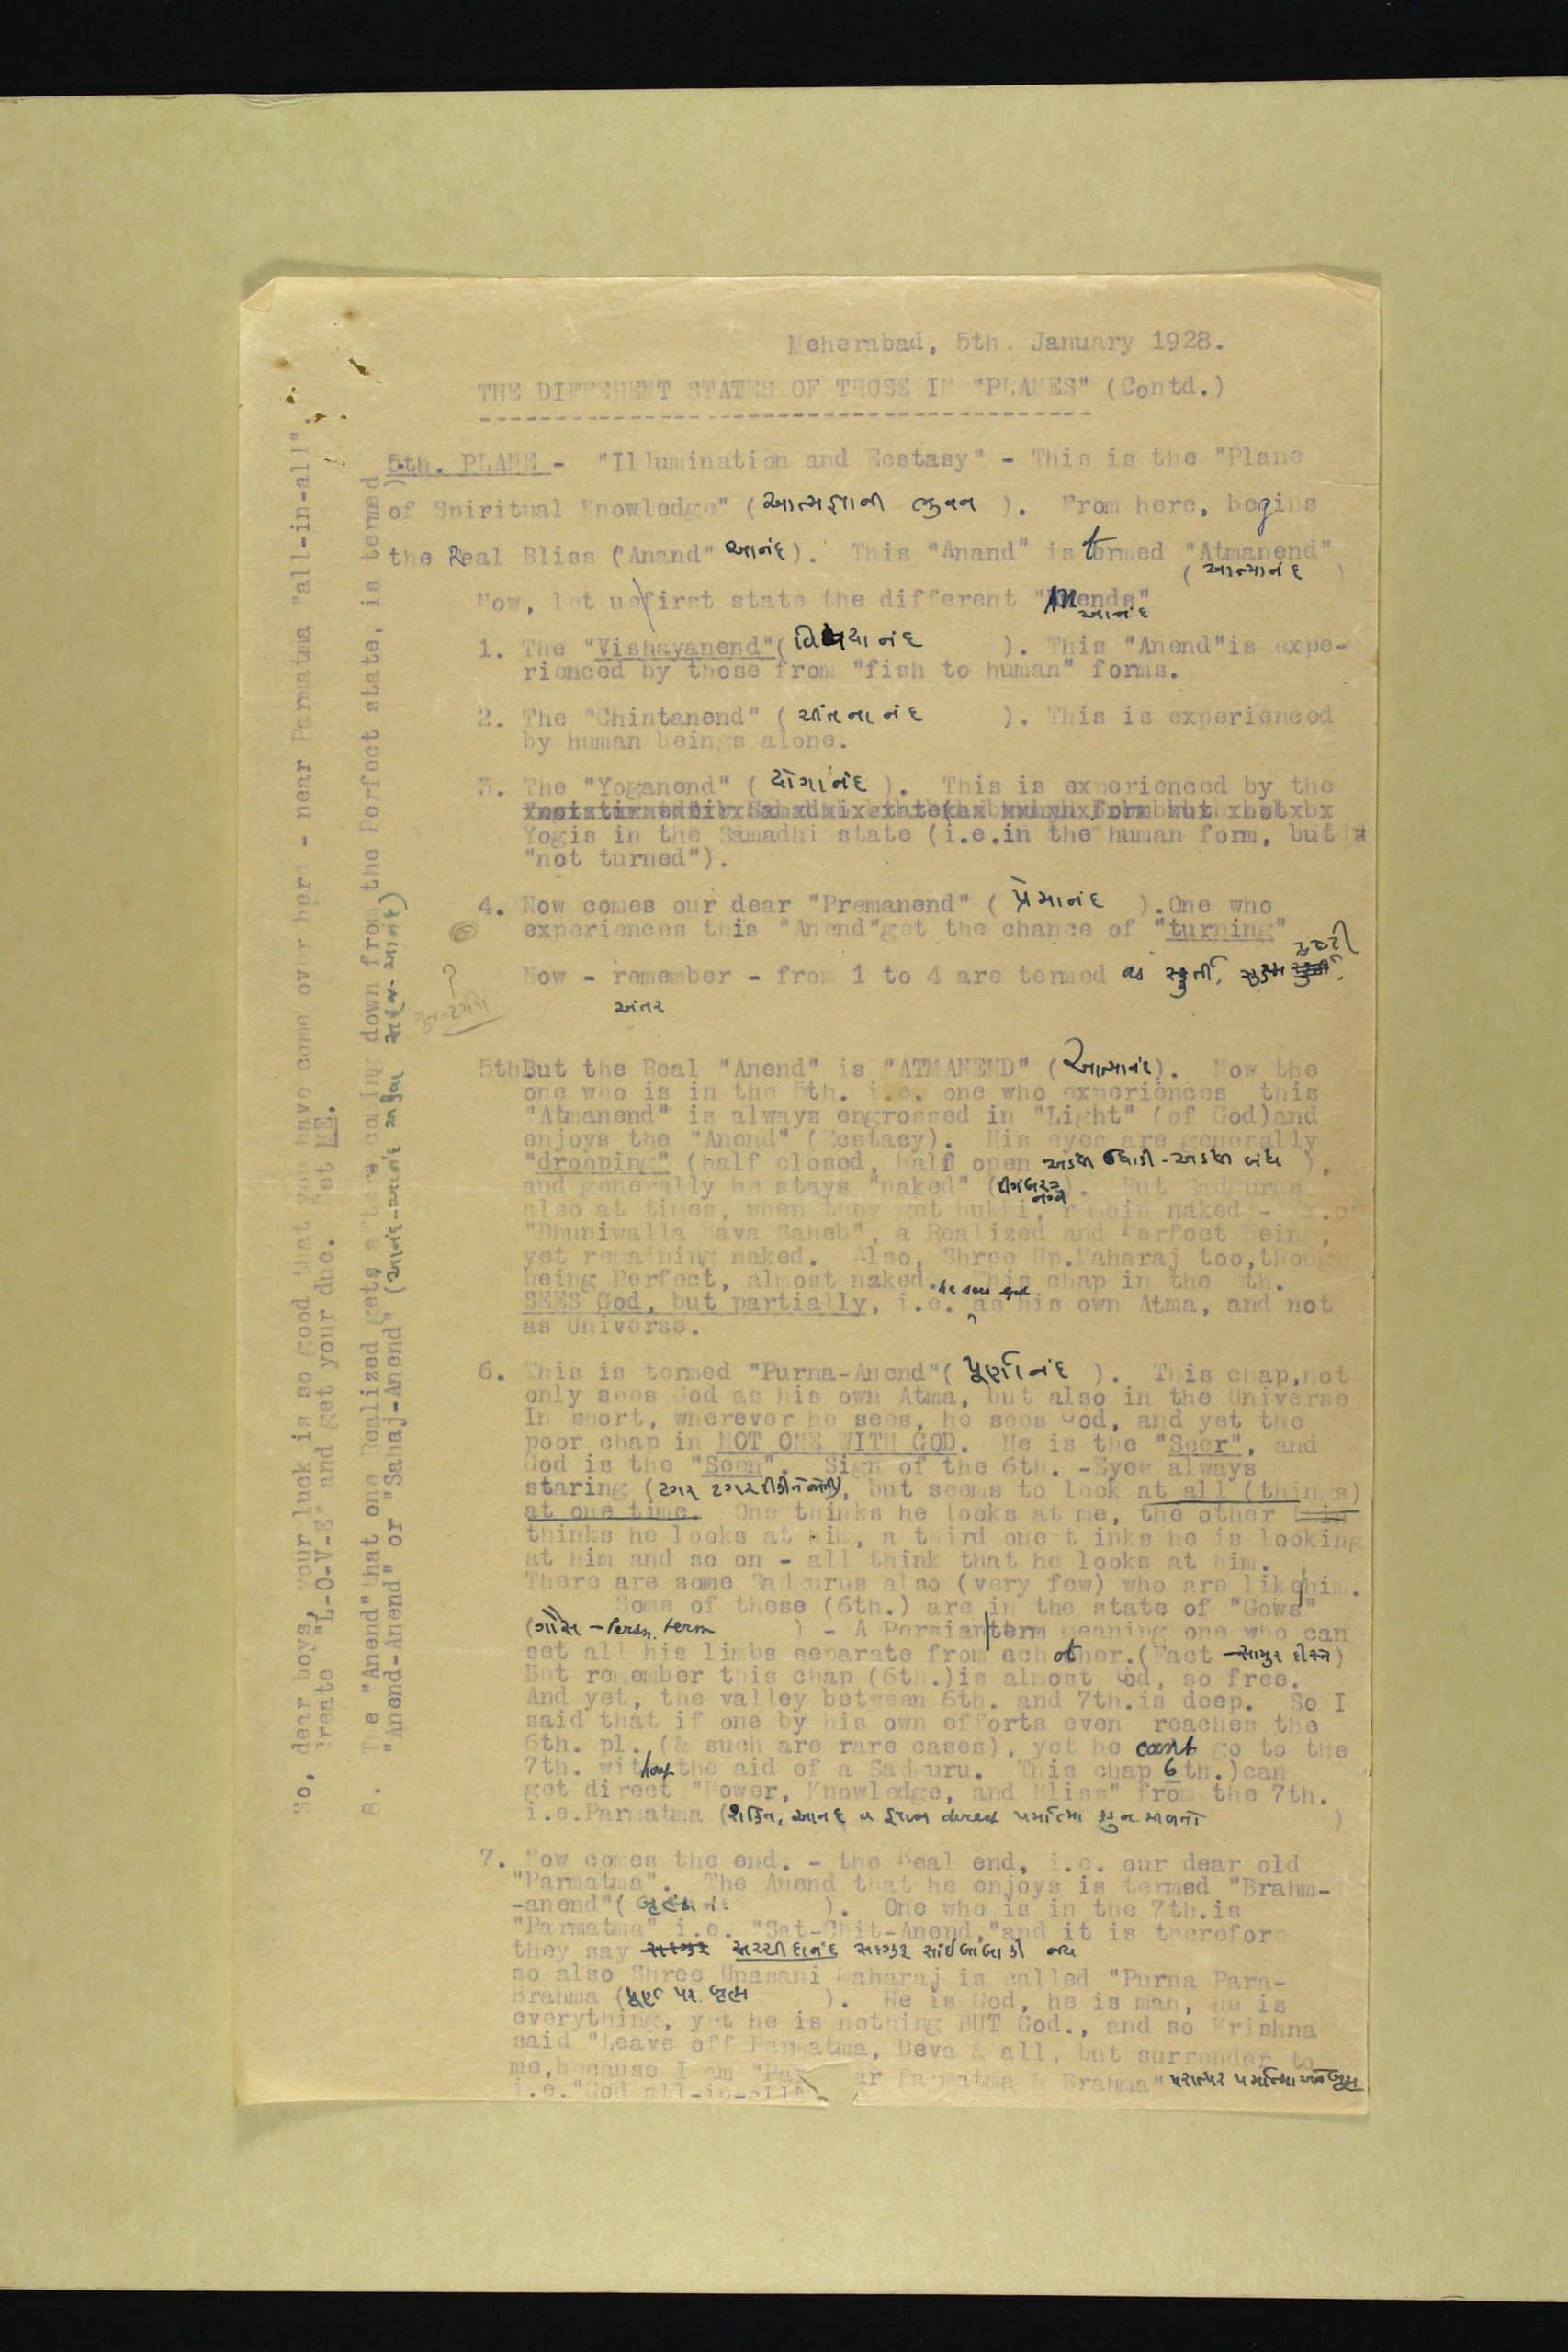 Meherabad, 5th. January 1928.
THE DIFFERENT STATES OF THOSE IN "PLANES" (Contd.)
5th. PLANE - "Illumination and Ecstasy" - This is the "Plane
of Spiritual Knowledge" (આત્મજ્ઞાની ભુવન ). From here, begins
the Real Bliss ("Anand" આનંદ). This "Anand" is termed "Atmanend"
( આત્માનંદ )
Now, let us first state the different "Anends"
આનંદ
1. The "Vishayanend"( વિષયાનંદ ). This "Anend"is expe-
rienced by those from "fish to human" forms.
2. The "Chintanend" ( ચીંતનાનંદ ). This is experienced
by human beings alone.
3. The "Yoganend" ( યોગાનંદ ). This is experienced by the
Yogis in the Samadhi state (i.e.in the human form, but
"not turned").
4. Now comes our dear "Premanend" ( પ્રેમાનંદ ).One who
experiences this "Anend"get the chance of "turning"
Now - remember - from 1 to 4 are termed as
અંતર
5th But the Real "Anend" is "ATMANEND" (આત્માનંદ). Now the
one who is in the 5th. i.e. one who experiences this
"Atmanend" is always engrossed in "Light" (of God)and
enjoys the "Anend" (Ecstacy). His eyes are generally
"drooping" (half closed, half open અડધી ઉઘાડી - અડધી બંધ ),
and generally he stays "naked" (દીગંબર=
નગ્ન). But Sadgurus
also at times, when they get hukki, remain naked -
"Dhuniwalla Bava Saheb", a Realized and Perfect Being,
yet remaining naked. Also, Shree Up.Maharaj too,though
being Perfect, almost naked. This chap in the 5th.
SEES God, but partially, i.e. he sees god as his own Atma, and not
as Universe.
6. This is termed "Purna-Anend"( પૂર્ણાનંદ ). This chap,not
only sees God as his own Atma, but also in the Universe
In short, wherever he sees, he sees God, and yet the
poor chap in NOT ONE WITH GOD. He is the "Seer", and
God is the "Seen". Sign of the 6th. -Eyes always
staring (ટગર ટગર), but seems to look at all (things)
at one time. One thinks he looks at me, the other
thinks he looks at him, a third one thinks he is looking
at him and so on - all think that he looks at him.
There are some Sadgurus also (very few) who are like him.
Some of these (6th.) are in the state of "Gows"
(ગૌસ - Persn. term ) - A Persian term meaning one who can
set all his limbs separate from each other.(Fact
But remember this chap (6th.)is almost God, so free.
And yet, the valley between 6th. and 7th.is deep. So I
said that if one by his own efforts even reaches the
6th. pl. (& such are rare cases), yet he can't go to the
7th. without the aid of a Sadguru. This chap 6th.)can
get direct "Power, Knowledge, and Bliss" from the 7th.
i.e.Parmatma (શક્તિ, આનંદ direct )
7. Now comes the end. - the Real end, i.e. our dear old
"Parmatma". The Anend that he enjoys is termed "Brahm-
-anend"( બ્રહ્માનંદ ). One who is in the 7th.is
"Parmatma" i.e. "Sat-Chit-Anend,"and it is therefore
they say સચ્ચીદાનંદ સદગુરુ સાંઈબાબા કી જય
so also Shree Upasani Maharaj is called "Purna Para-
Brahma (પૂર્ણ પર બ્રહ્મ ). He is God, he is man, he is
everything, yet he is nothing BUT God., and so Krishna
said "Leave off Parmatma, Deva & all, but surrender to
me,because I am "Par ar Parmatma & Brahma"
i.e."God all-in-all"
8. The "Anend"that one Realized gets, after coming down from the Perfect state, is termed
"Anend-Anend" or "Sahaj-Anend" (આનંદ-આનંદ સહજ-આનંદ)
So, dear boys, your luck is so good that you have come over here - near Parmatma "all-in-all".
Create "L-O-V-E" and get your due. Get ME.